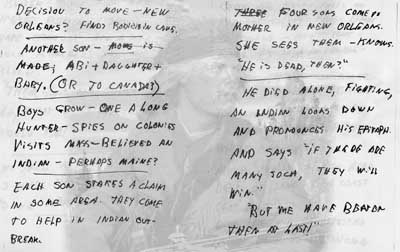 DECISION TO MOVE - NEW
ORLEANS? FINDS BOUDOIN LAND.
ANOTHER SON - MOVE IS
MADE; ABI + DAUGHTER +
BABY. (OR TO CANADA?)
BOYS GROW - ONE A LONG
HUNTER - SPIES ON COLONIES
VISITS MASS - BELIEVED AN
INDIAN - PERHAPS MAINE?
EACH SON STAKES A CLAIM
IN SOME AREA. THEY COME
TO HELP IN INDIAN OUT-
BREAK.
THREE FOUR SONS COME TO
MOTHER IN NEW ORLEANS.
SHE SEES THEM - KNOWS.
"HE IS DEAD, THEN?"
HE DIED ALONE, FIGHTING,
AN INDIAN LOOKS DOWN
AND PRONOUNCES HIS EPITAPH.
AND SAYS "IF THERE ARE
MANY SUCH, THEY WILL
WIN."
"BUT WE HAVE BEATEN
THEM AT LAST!"